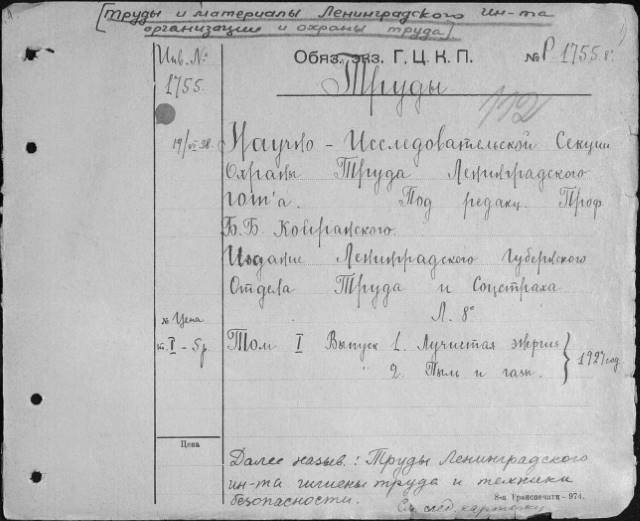 [Труды и материалы Ленинградского ин-та
организации и охраны труда]
Инв. №
1755
Обяз. экз. Г.Ц.К.П.
№ Р 1755 г.
Труды
112
19/VI 38
Научно - Исследовательской Секции
Охраны Труда Ленинградского
гот'а. Под редакц. Проф
Б.Б. Койранского.
Издание Ленинградского Губернского
Отдела Труда и Соцстраха
Л. 8°
№ Цена
т. I - 5р
Том I Выпуск 1. Лучистая энергия
" 2. Пыль и газы. } 1927 год.
Цена
Далее назыв.: Труды Ленинградского
ин-та гигиены труда и техники
безопасности.
8-я Транспечати - 974.
См след. карточку